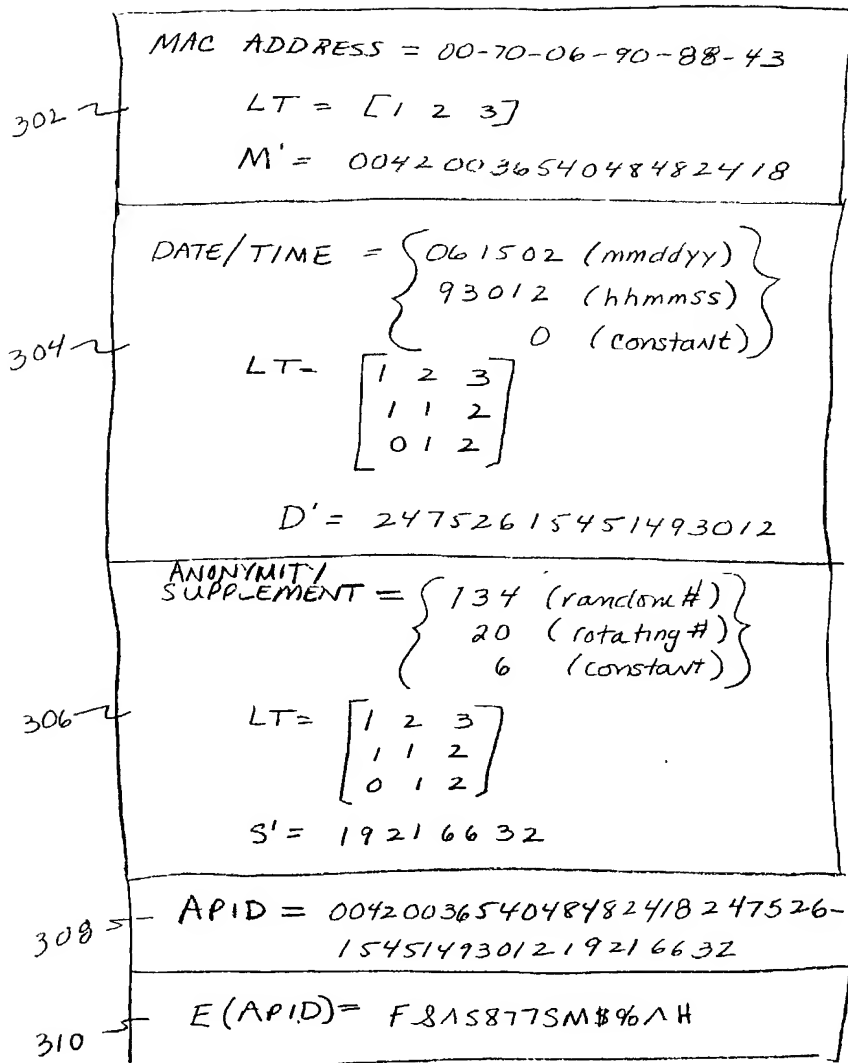 MAC ADDRESS = 00-70-06-90-88-43
302
LT = [1 2 3]
M' = 00420036540484824 18
DATE/TIME = {061502 (mmddyy)
93012 (hhmmss)
0 (constant)}
304
LT-
[1 2 3
1 1 2
0 1 2]
D' = 247526154514 93012
ANONYMITY/
SUPPLEMENT = {134 (random #)
20 (rotating #)
6 (constant)}
306
LT=
[1 2 3
1 1 2
0 1 2]
S' = 19216632
308
APID = 0042003654048482418247526-
1545149301219216632
310
E(APID)= F&^S877SM$%^H